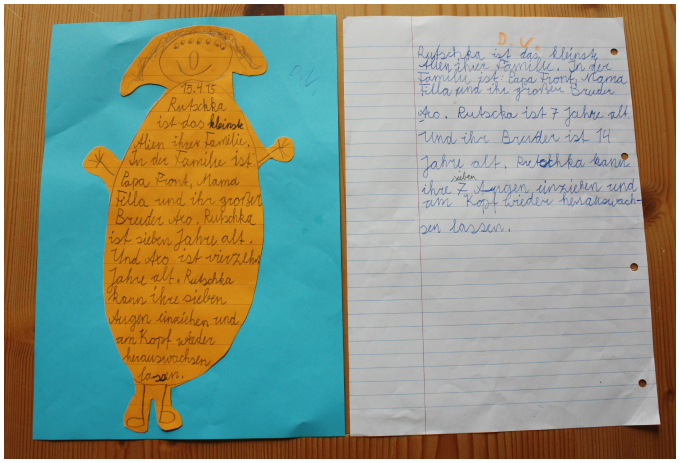 15.4.15
Rutschka
ist das kleinste
Alien ihrer Familie.
In der Familie ist
Papa Front, Mama
Fella und ihr großer
Bruder Aro. Rutschka
ist sieben Jahre alt.
Und Aro ist vierzehn
Jahre alt. Rutschka
kann ihre sieben
Augen einziehen und
am Kopf wieder
herauswachsen
lassen.
D. V.
Rutschka ist das kleinste
Alien ihrer Familie. In der
Familie ist: Papa Front, Mama
Fella und ihr großer Bruder
Aro. Rutscka ist 7 Jahre alt.
Und ihr Bruder ist 14
Jahre alt. Rutschka kann
sieben
ihre 7 Augen einziehen und
am Kopf wieder herauswach-
sen lassen.